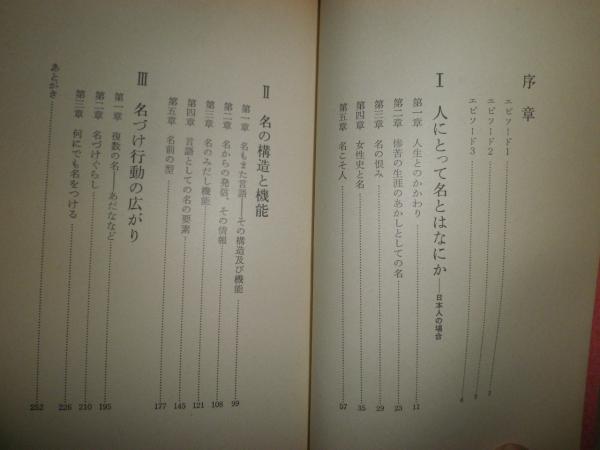 序章
エピソード1
エピソード2
エピソード3
I 人にとって名とはなにか——日本人の場合
第一章 人生とのかかわり 11
第二章 惨苦の生涯のあかしとしての名 23
第三章 名の恨み 29
第四章 女性史と名 35
第五章 名こそ人 57
II 名の構造と機能
第一章 名もまた言語——その構造及び機能 99
第二章 名からの発信、その情報 108
第三章 名のみだし機能 121
第四章 言語としての名の要素 145
第五章 名前の型 177
III 名づけ行動の広がり
第一章 複数の名——あだななど 195
第二章 名づけぐらし 210
第三章 何にでも名をつける 226
あとがき 252